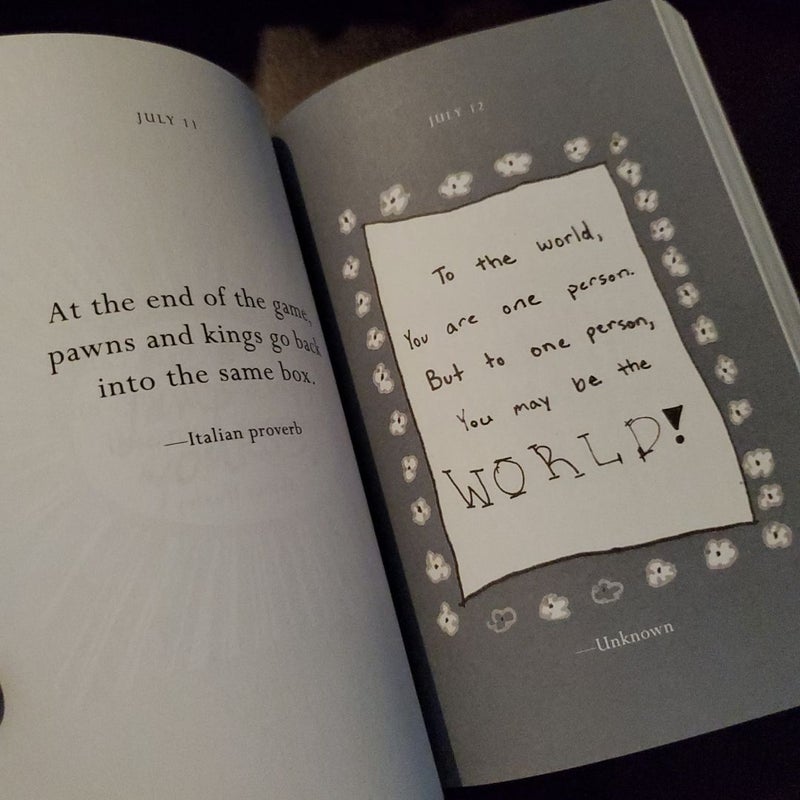 JULY 11
At the end of the game,
pawns and kings go back
into the same box.
—Italian proverb
JULY 12
To the world,
You are one person.
But to one person,
You may be the
WORLD!
—Unknown